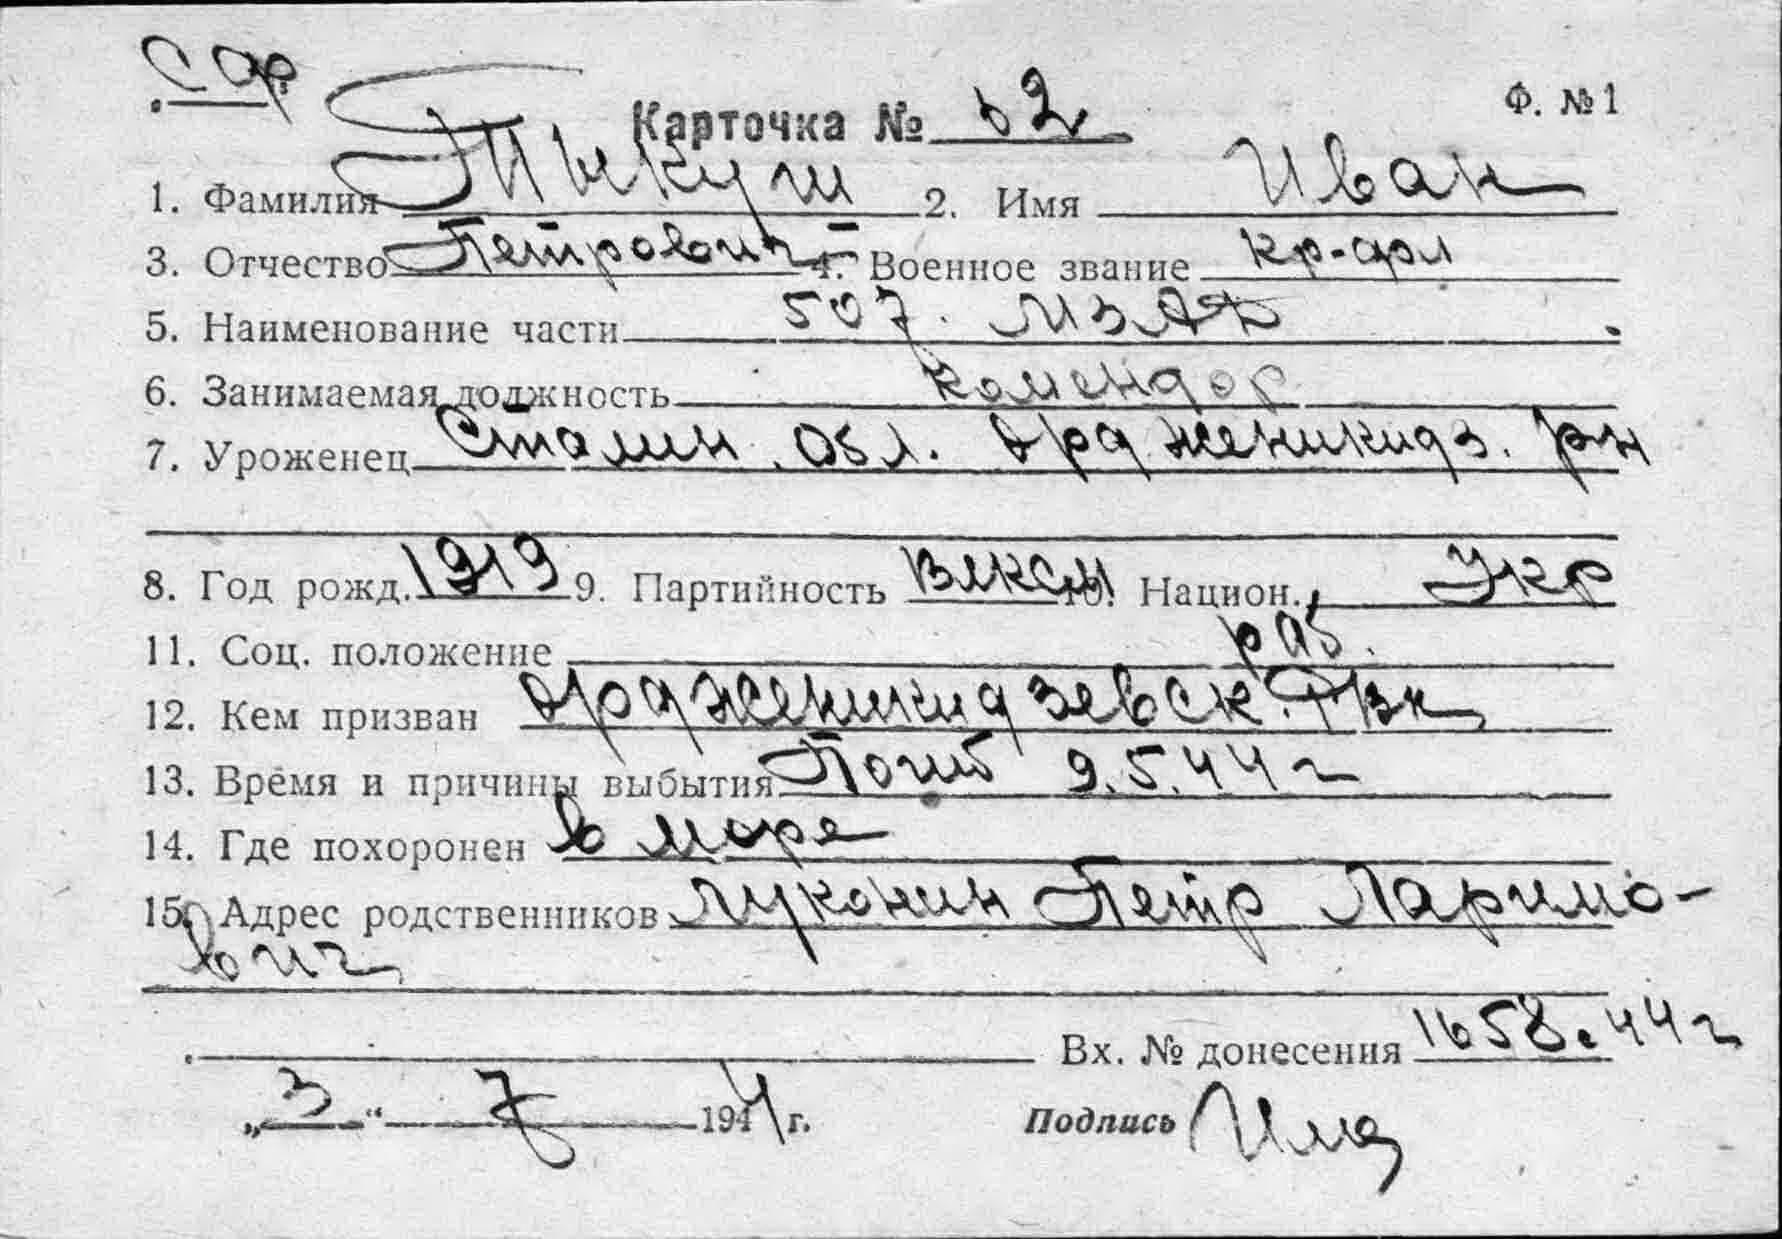 Ф. №1
Карточка № 62
1. Фамилия Тыкуш 2. Имя Иван
3. Отчество Петрович 4. Военное звание кр-фл
5. Наименование части 507. МЗАД
6. Занимаемая должность комендор
7. Уроженец Сталин. обл. Ордженикидз. рн
8. Год рожд. 1919 9. Партийность ВЛКСМ 10. Национ. Укр
11. Соц. положение раб.
12. Кем призван Ордженикидзевск. РВК
13. Время и причины выбытия Погиб 9.5.44 г
14. Где похоронен в море
15. Адрес родственников Луконин Петр Ларимо-
вич
Вх. № донесения 1658.44 г
„3“ 7 1944 г. Подпись